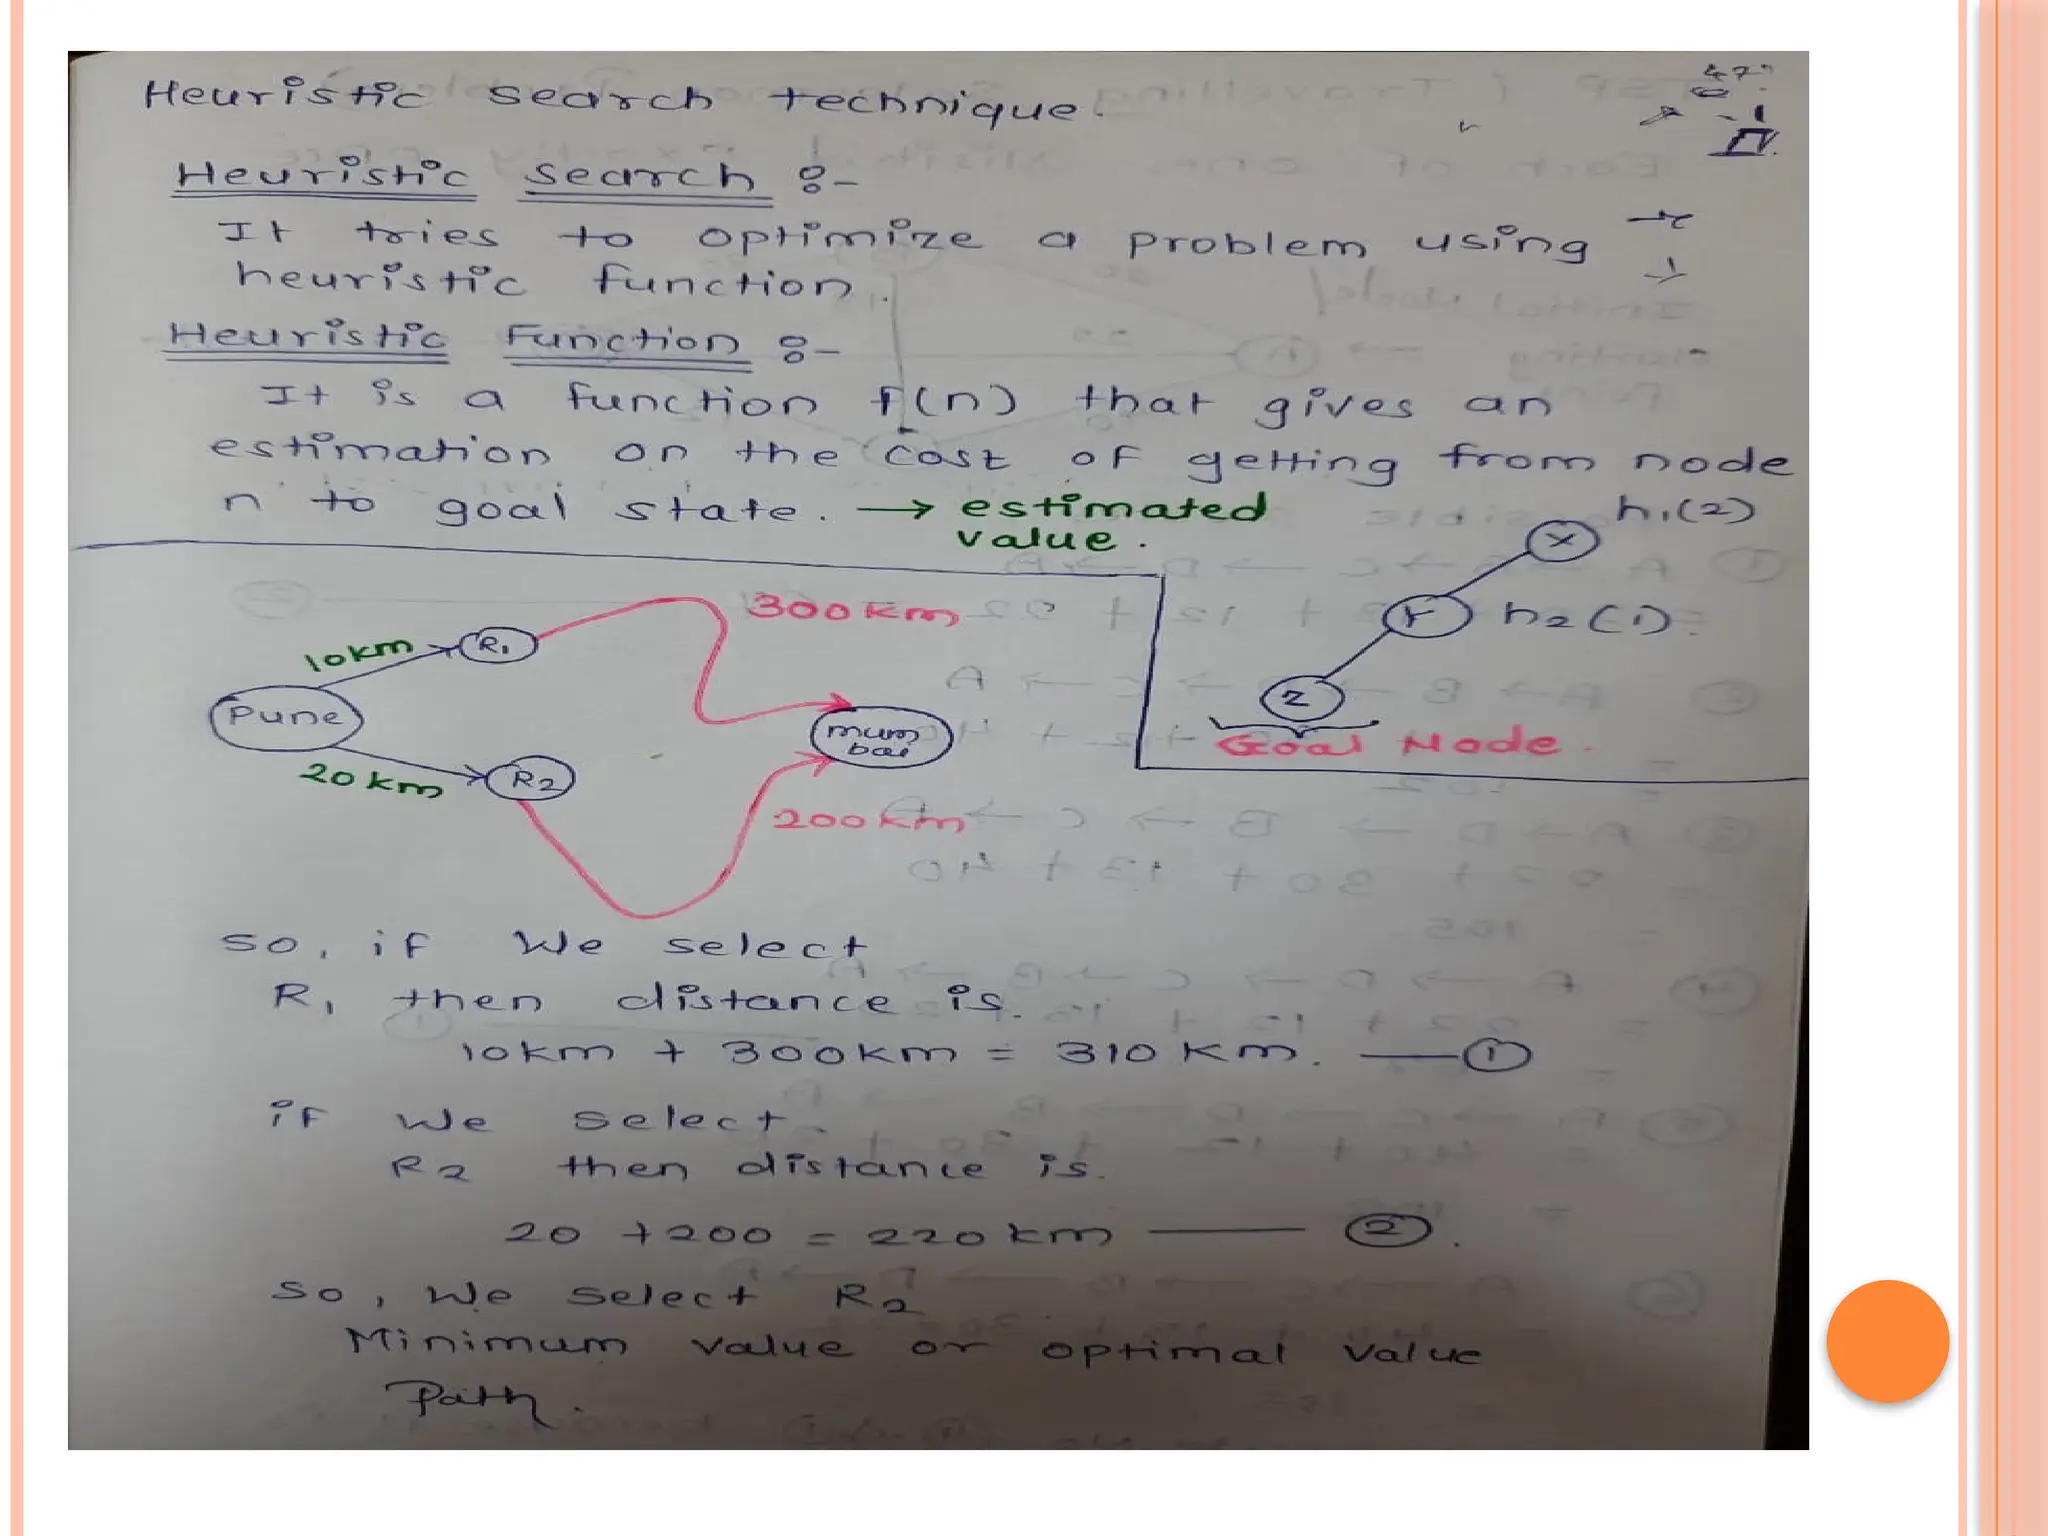 Heuristic search technique.
Heuristic search :-
It tries to optimize a problem using
heuristic function.
Heuristic Function :-
It is a function f(n) that gives an
estimation on the cost of getting from node
n to goal state. → estimated
value.
h1(2)
X
Y h2(1).
Z
Goal Node.
300km
10km
R1
Pune
mum
bai
20km
R2
200km
so, if we select
R1 then distance is.
10km + 300km = 310km. — 1
if we select
R2 then distance is.
20 + 200 = 220km — 2.
so, we select R2
Minimum value or optimal value
Path.